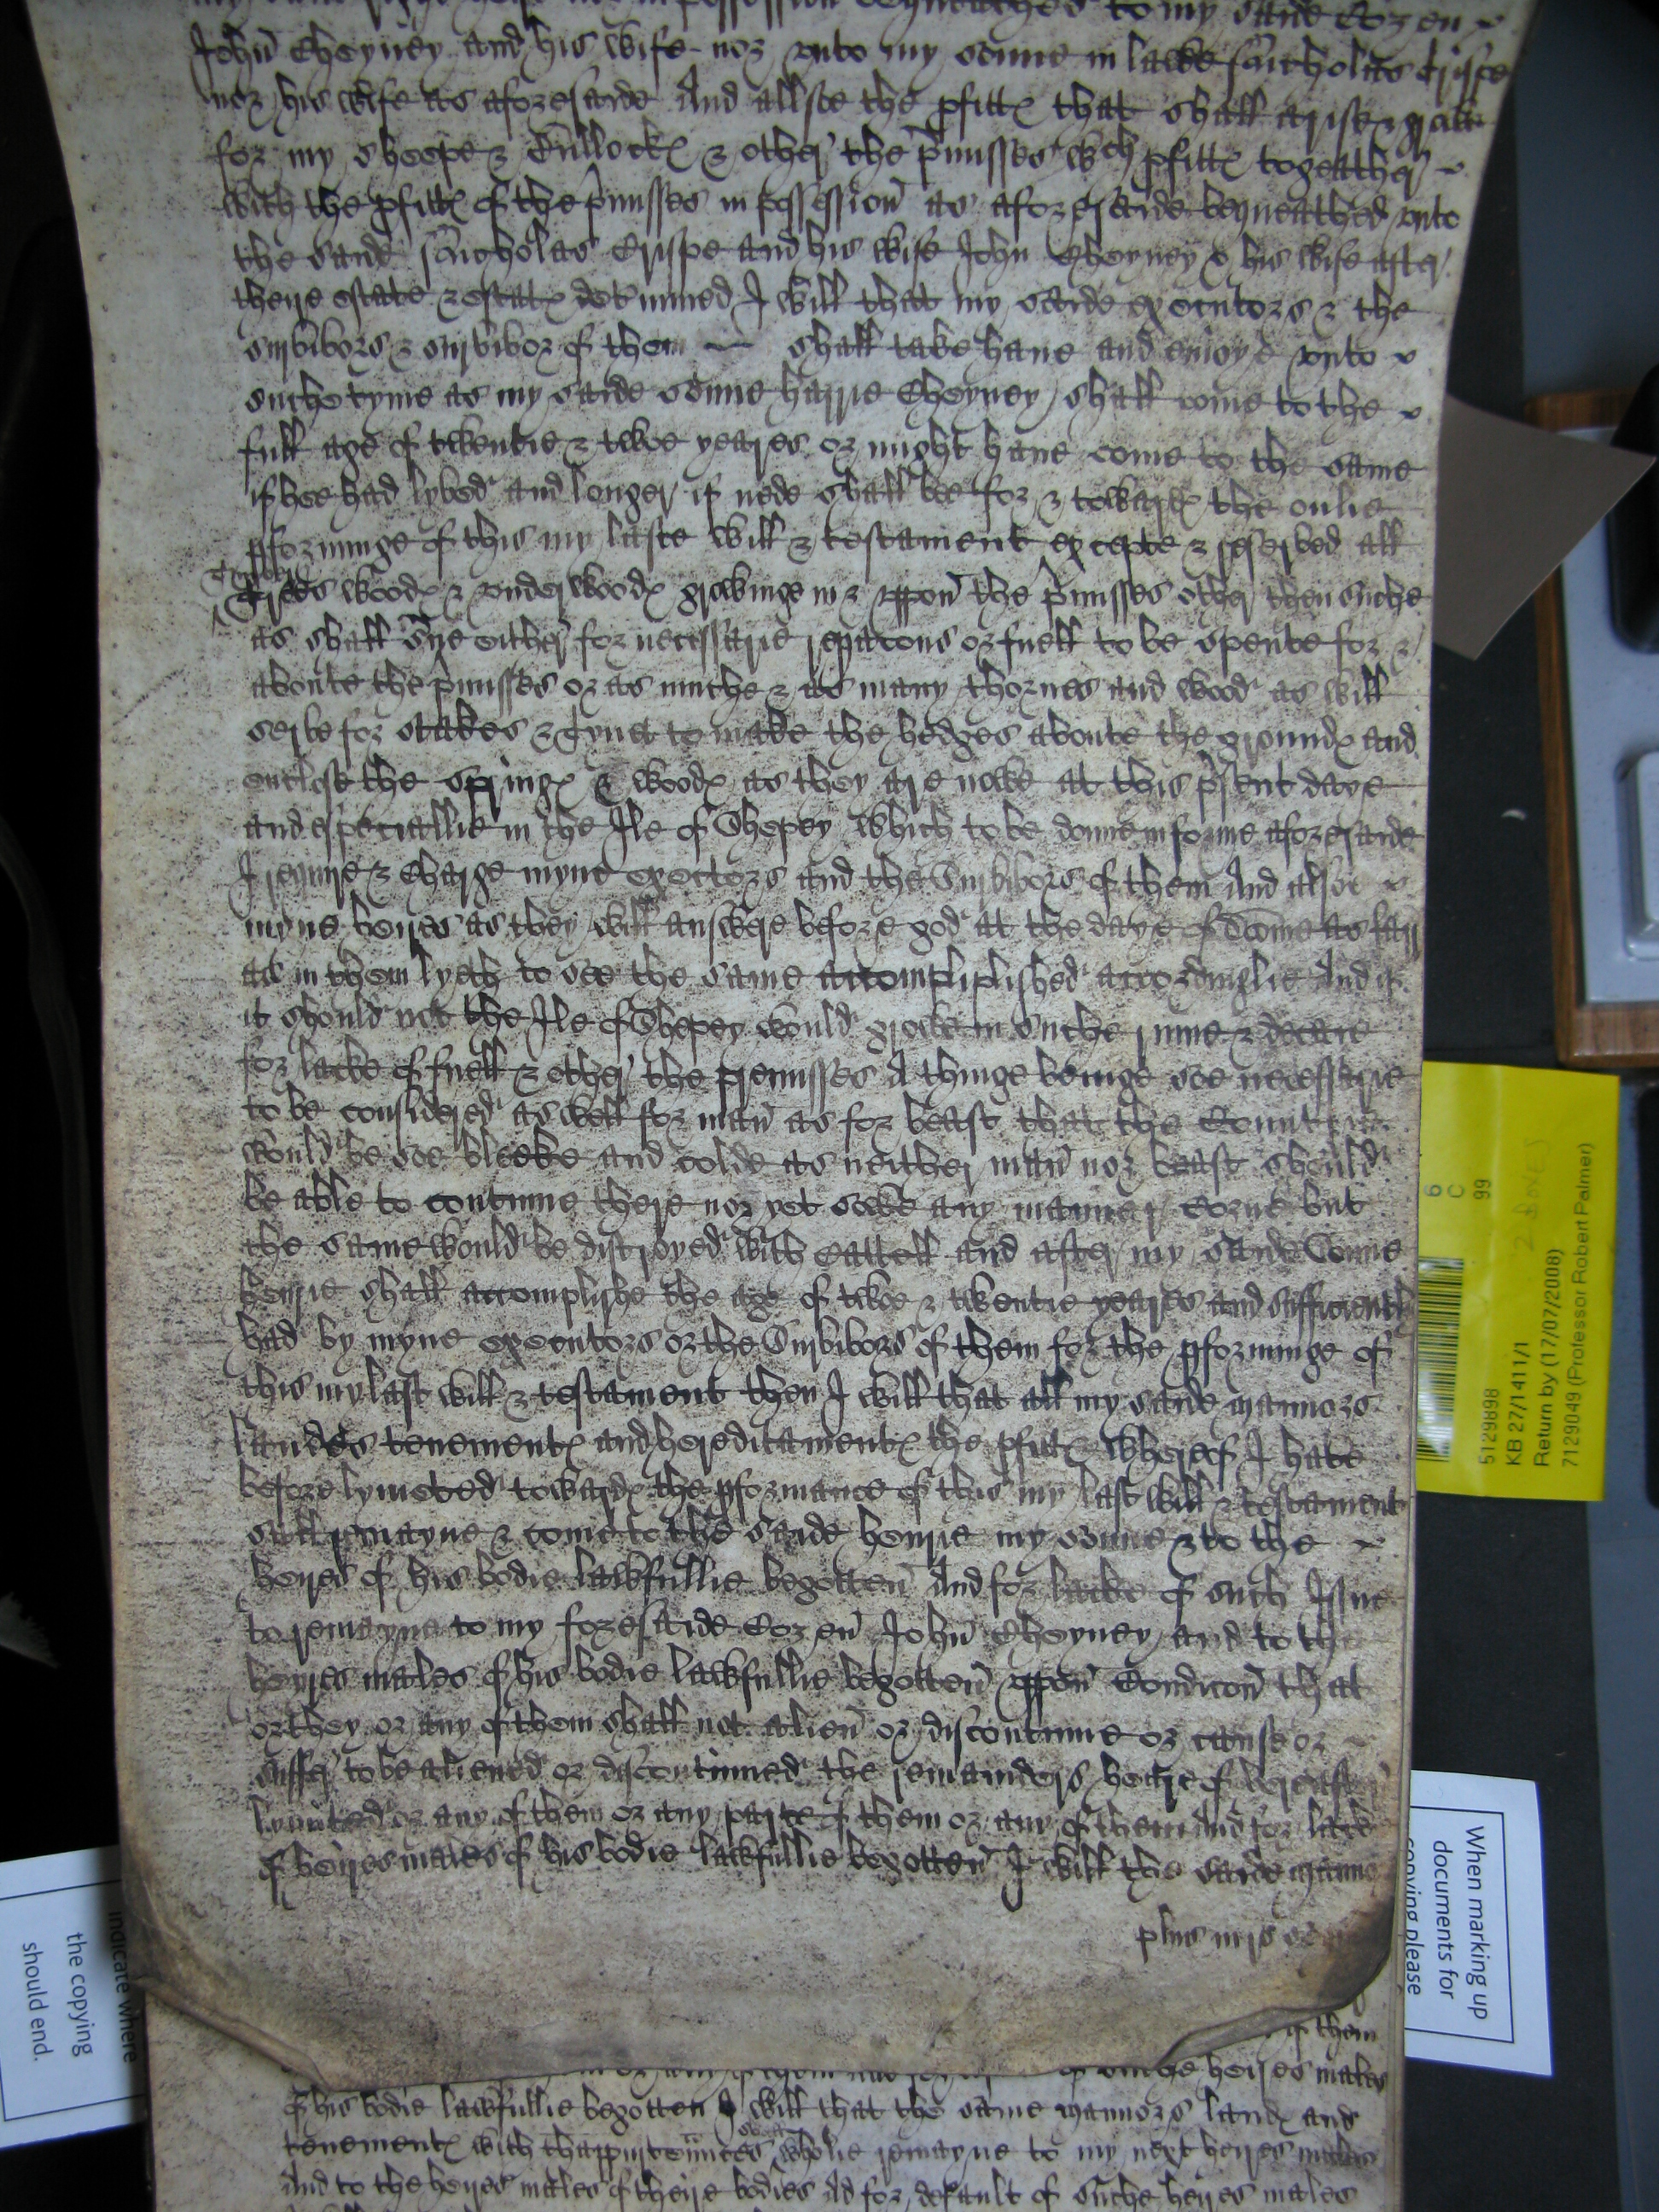 to my saide Cozen
John Cheyney and his wife nor vnto my sonne in lawe Nicholas Crispe
nor his wife as aforesaide And allsoe the pfitt that shall arise & growe
for my sheepe & Bullock & other the p'misses wch pfitt togeather
with the pfitt of the p'misses in possession as aforesaide bequeathed vnto
the saide Nicholas Crispe and his wife John Cheyney & his wife after
there estate & estat det'mined I will that my saide executors & the
survivors & survivor of them shall take have and enioye vnto
suche tyme as my saide sonne harrie Cheyney shall come to the
full age of twentie & twoe yeares or might have come to the same
if hee had lyved and longer if nede shall bee for & toward the onlie
pforminge of this my laste will & testament excepte & reserved all
Trees wood & vnderwood growinge in & vppon the p'misses other then suche
as shall s'ue either for necessarie repacons or fuell to be spente for &
aboute the p'misses or as muche & as many thornes and wood as will
serve for stakes & Tynet to make the hedges aboute the ground and
enclose the spring & wood as they are nowe at this p'sent daye
and especiallie in the Ile of Shepey which to be donne in forme aforesaide
I require & Charge myne exectors and the Survivors of them And alsoe
myne heires as they will answere before god at the daye of Dome as farr
as in them lyeth to see the same accomplisplished accordinglie And if
it should not the Ile of Shepey would growe in suche ruine & decaie
for lacke of fuell & other the premisses A thinge beinge soe necessarie
to be considered aswell for man as for beast that the Countrie
would be soe bleeke and colde as neither man nor beast should
be able to contynue there nor yet sowe any manner Corne but
the same would be distroyed with Cattell and after my saide Sonne
henrie shall accomplishe the age of twoe & twentie yeares and sufficientlie
had by myne executors or the Survivors of them for the pforminge of
this my last will & testament then I will that all my saide mannors
landes tenement and hereditament the pfitt whereof I have
before lymeted toward the pformance of this my last will & testament
shall remayne & come to the saide henrie my sonne & to the
heires of his bodie lawfullie begotten And for lacke of such Issue
to remayne to my foresaide Cozen John Cheyney and to the
heyres males of his bodie lawfullie begotten vppon Condicon that
or they or any of them shall not alien or discontinue or cause or
suffer to be aliened or discontinued the remainders heare of hereafter
lymited or any of them or any parte of them or any of them And for lack
of heires males of his bodie lawfullie begotten I will the saide manno
plus
of them
of suche heires males
of his bodie lawfullie begotten I will that the same mannors land and
tenement with thappurtenances wholie remayne to my next heires males
And to the heires males of theire bodies Ad for default of Suche heires males
6
C
99
5129898
KB 27/1411/1
Return by (17/07/2008)
7129049 (Professor Robert Palmer)
When marking up
documents for
copying please
indicate where
the copying
should end.